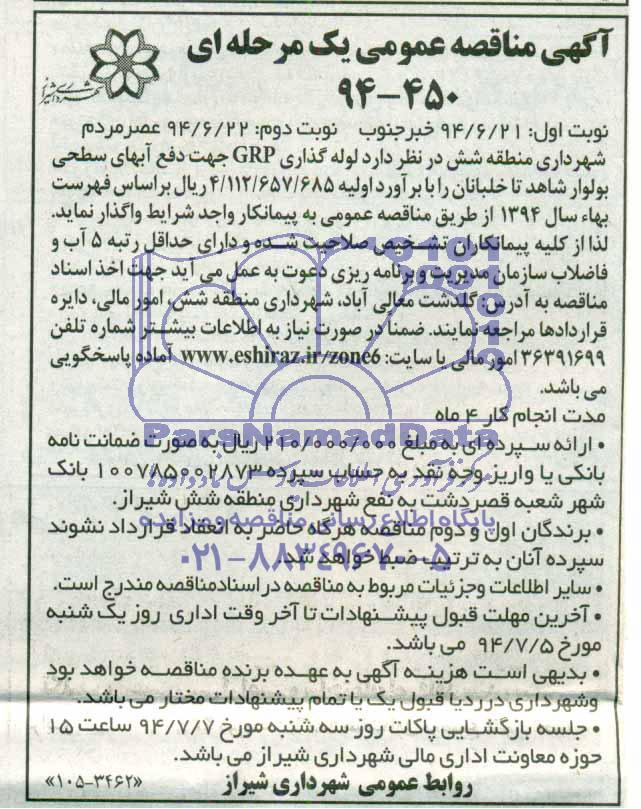 آگهی مناقصه عمومی یک مرحله ای
۹۴-۴۵۰
شهرداری شیراز
نوبت اول: ۹۴/۶/۲۱ خبرجنوب   نوبت دوم: ۹۴/۶/۲۲ عصرمردم
شهرداری منطقه شش در نظر دارد لوله گذاری GRP جهت دفع آبهای سطحی
بولوار شاهد تا خلبانان را با برآورد اولیه ۴/۱۱۲/۶۵۷/۶۸۵ ریال براساس فهرست
بهاء سال ۱۳۹۴ از طریق مناقصه عمومی به پیمانکار واجد شرایط واگذار نماید.
لذا از کلیه پیمانکاران تشخیص صلاحیت شده و دارای حداقل رتبه ۵ آب و
فاضلاب سازمان مدیریت و برنامه ریزی دعوت به عمل می آید جهت اخذ اسناد
مناقصه به آدرس: گلدشت معالی آباد، شهرداری منطقه شش، امور مالی، دایره
قراردادها مراجعه نمایند. ضمنا در صورت نیاز به اطلاعات بیشتر شماره تلفن
۳۶۳۹۱۶۹۹ امور مالی یا سایت: www.eshiraz.ir/zone6 آماده پاسخگویی
می باشد.
مدت انجام کار ۴ ماه
• ارائه سپرده ای به مبلغ ۲۱۰/۰۰۰/۰۰۰ ریال به صورت ضمانت نامه
بانکی یا واریز وجه نقد به حساب سپرده ۱۰۰۷۸۵۰۰۲۸۷۳ بانک
شهر شعبه قصردشت به نفع شهرداری منطقه شش شیراز.
• برندگان اول و دوم مناقصه هرگاه حاضر به انعقاد قرارداد نشوند
سپرده آنان به ترتیب ضبط خواهد شد.
• سایر اطلاعات وجزئیات مربوط به مناقصه در اسنادمناقصه مندرج است.
• آخرین مهلت قبول پیشنهادات تا آخر وقت اداری روز یک شنبه
مورخ ۹۴/۷/۵ می باشد.
• بدیهی است هزینه آگهی به عهده برنده مناقصه خواهد بود
وشهرداری درردیا قبول یک یا تمام پیشنهادات مختار می باشد.
• جلسه بازگشایی پاکات روز سه شنبه مورخ ۹۴/۷/۷ ساعت ۱۵
حوزه معاونت اداری مالی شهرداری شیراز می باشد.
روابط عمومی شهرداری شیراز
«۱۰۵-۳۴۶۲»
ParaNamadData
پایگاه اطلاع رسانی مناقصه و مزایده
۰۲۱-۸۸۳۴۹۶۷۰-۵